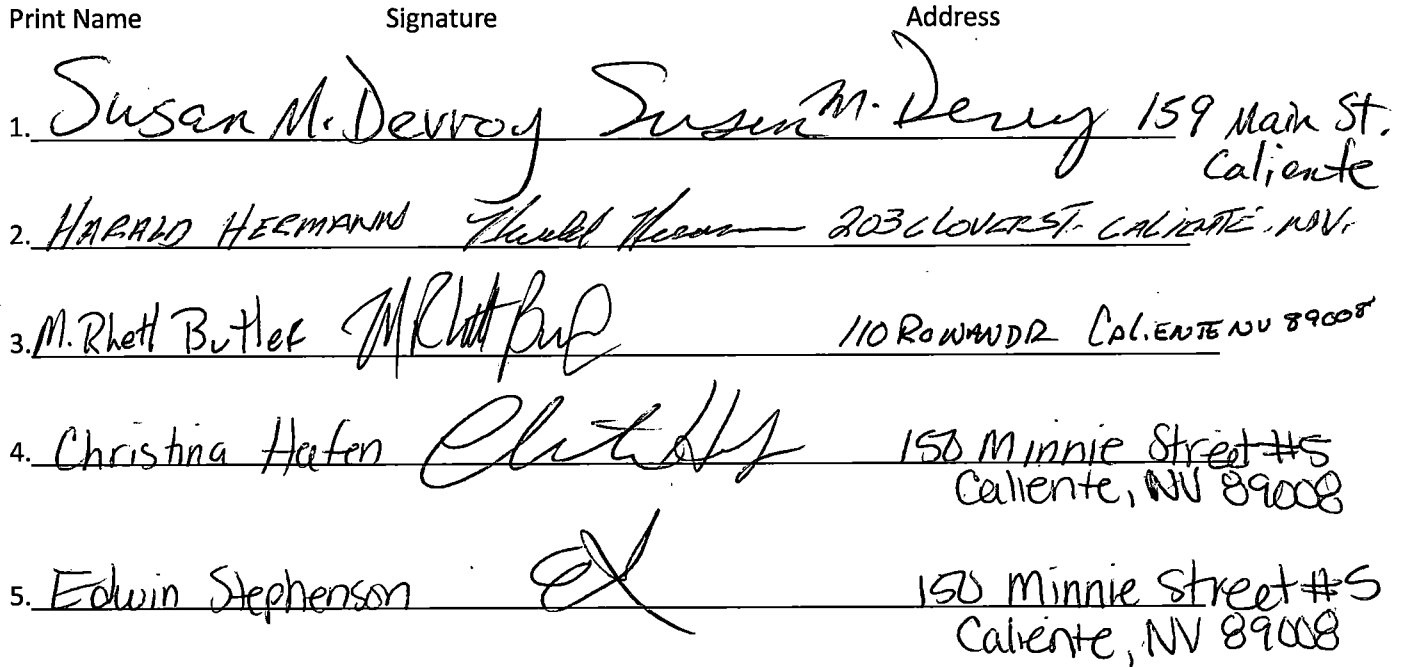 Print Name Signature Address
1. Susan M. Devroy Susan M. Devroy 159 Main St.
Caliente
2. HARALD HERMANN Harald Hermann 203 CLOVER ST. CALIENTE, NV.
3. M. Rhett Butler M Rhett But 110 ROWAN DR CALIENTE NV 89008
4. Christina Hafen 150 Minnie Street #5
Caliente, NV 89008
5. Edwin Stephenson 150 Minnie Street #5
Caliente, NV 89008